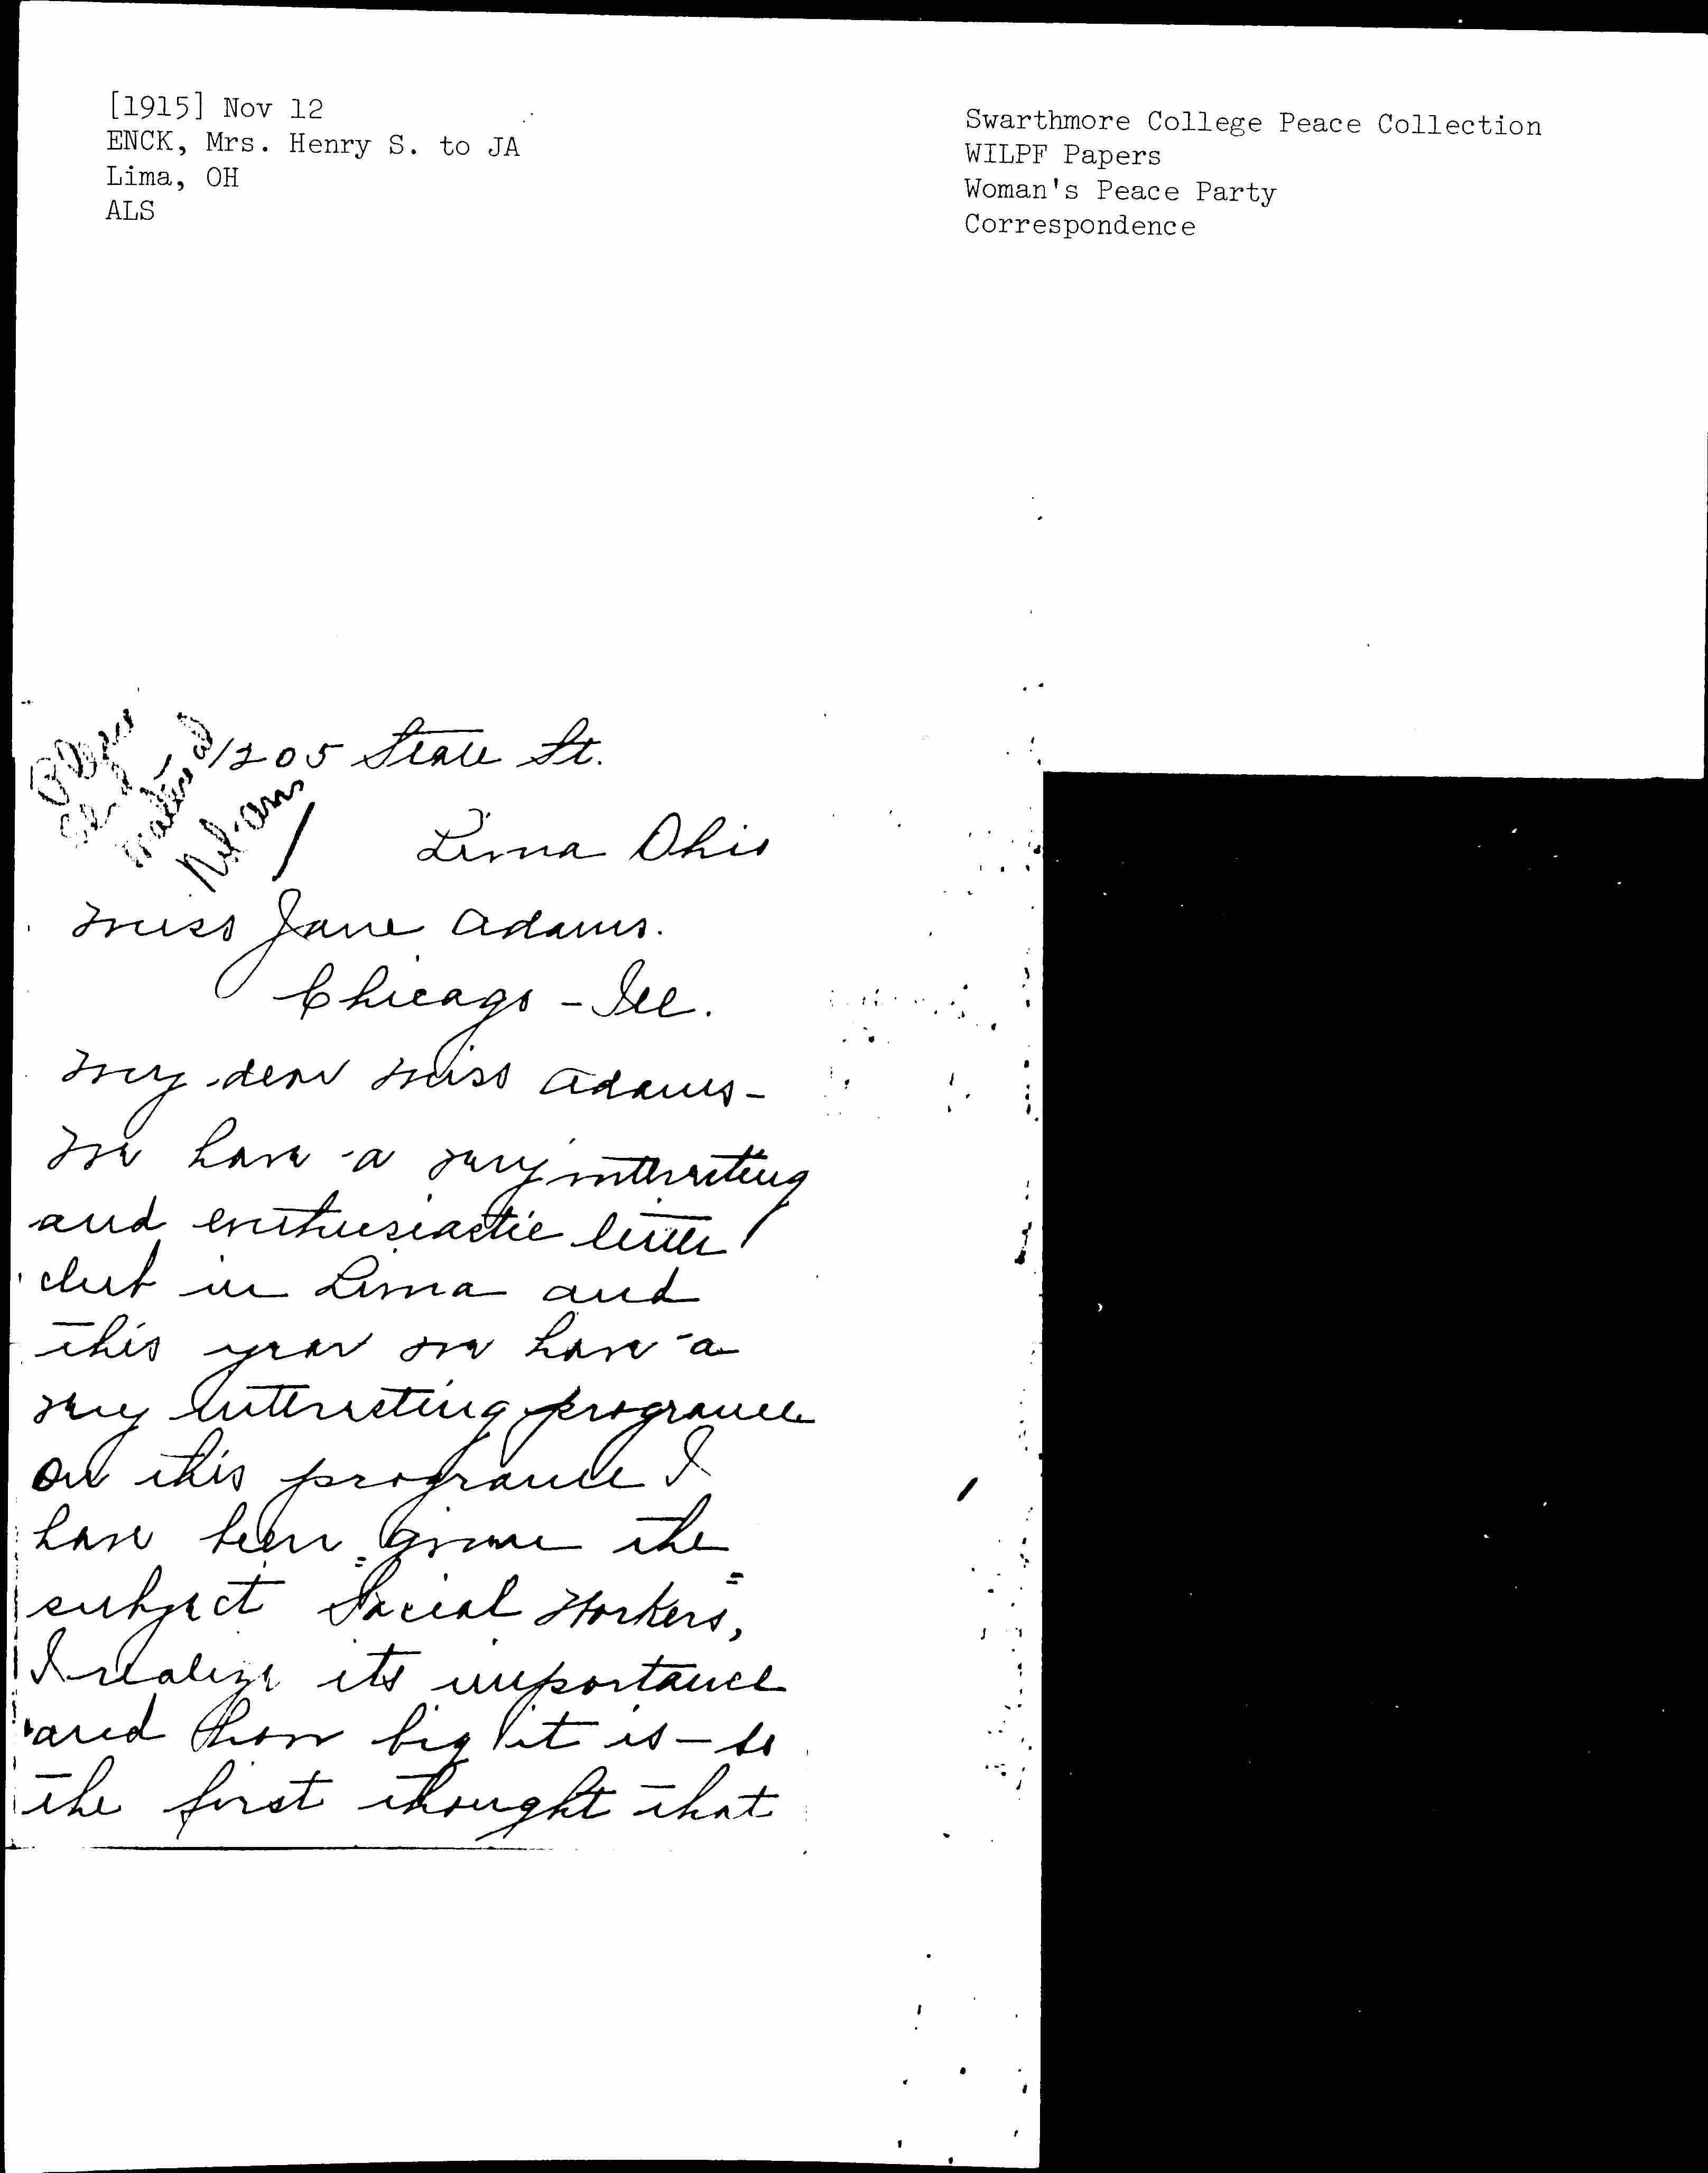 [1915] Nov 12
ENCK, Mrs. Henry S. to JA
Lima, OH
ALS
Swarthmore College Peace Collection
WILPF Papers
Woman's Peace Party
Correspondence
material
1205 State St.
Lima Ohio
Miss Jane Adams.
Chicago - Ill.
My dear Miss Adams -
We have a very interesting
and enthusiastic little
club in Lima and
this year we have a
very interesting programe
on this programe I
have been given the
subject "Social Workers",
I realize its importance
and how big it is - so
the first thought that